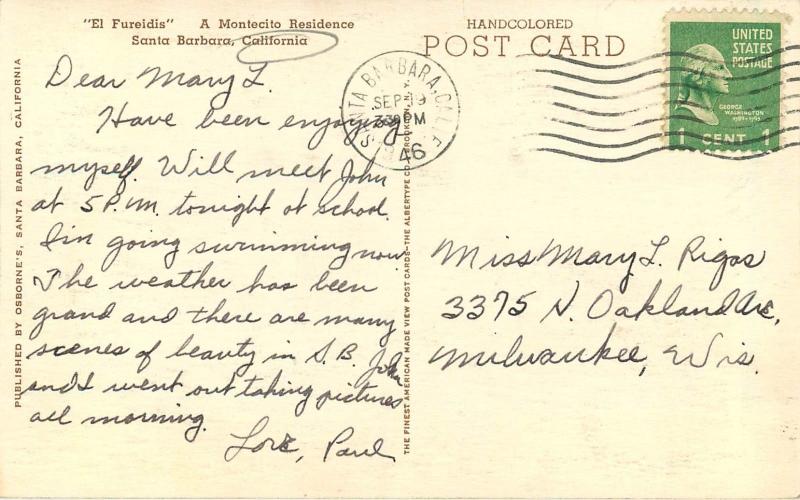 "El Fureidis" A Montecito Residence
Santa Barbara, California
Dear Mary L.
Have been enjoying
myself. Will meet John
at 5 P.M. tonight at school.
I'm going swimming now
The weather has been
grand and there are many
scenes of beauty in S.B. John
and I went out taking pictures
all morning.
Love, Paul
PUBLISHED BY OSBORNE'S, SANTA BARBARA, CALIFORNIA
THE FINEST AMERICAN MADE VIEW POST CARDS—THE ALBERTYPE CO., BROOKLYN, N.Y.
HANDCOLORED
POST CARD
SANTA BARBARA, CALIF.
SEP 19
3 30 PM
46
UNITED
STATES
POSTAGE
GEORGE
WASHINGTON
1 CENT 1
Miss Mary L. Rigas
3375 N. Oakland Ave,
Milwaukee, Wis.